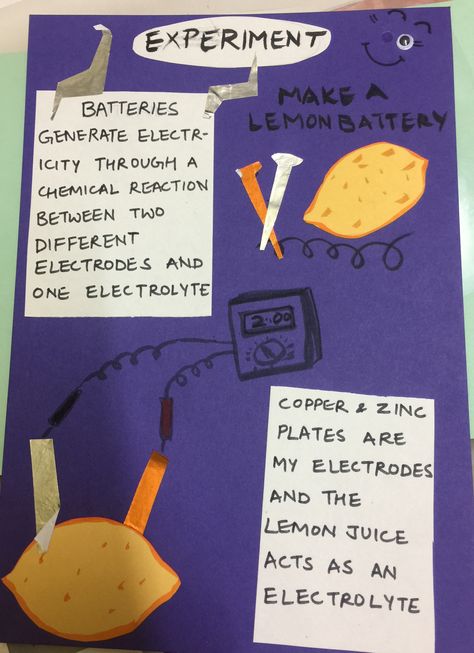 EXPERIMENT
MAKE A
LEMON BATTERY
BATTERIES
GENERATE ELECTR-
ICITY THROUGH A
CHEMICAL REACTION
BETWEEN TWO
DIFFERENT
ELECTRODES AND
ONE ELECTROLYTE
2.00
COPPER & ZINC
PLATES ARE
MY ELECTRODES
AND THE
LEMON JUICE
ACTS AS AN
ELECTROLYTE